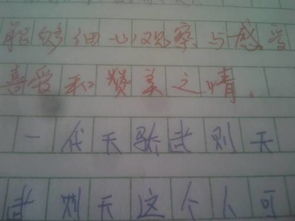 能够细心观察与感受
喜爱和赞美之情。
一代天骄武则天
武则天这个人可